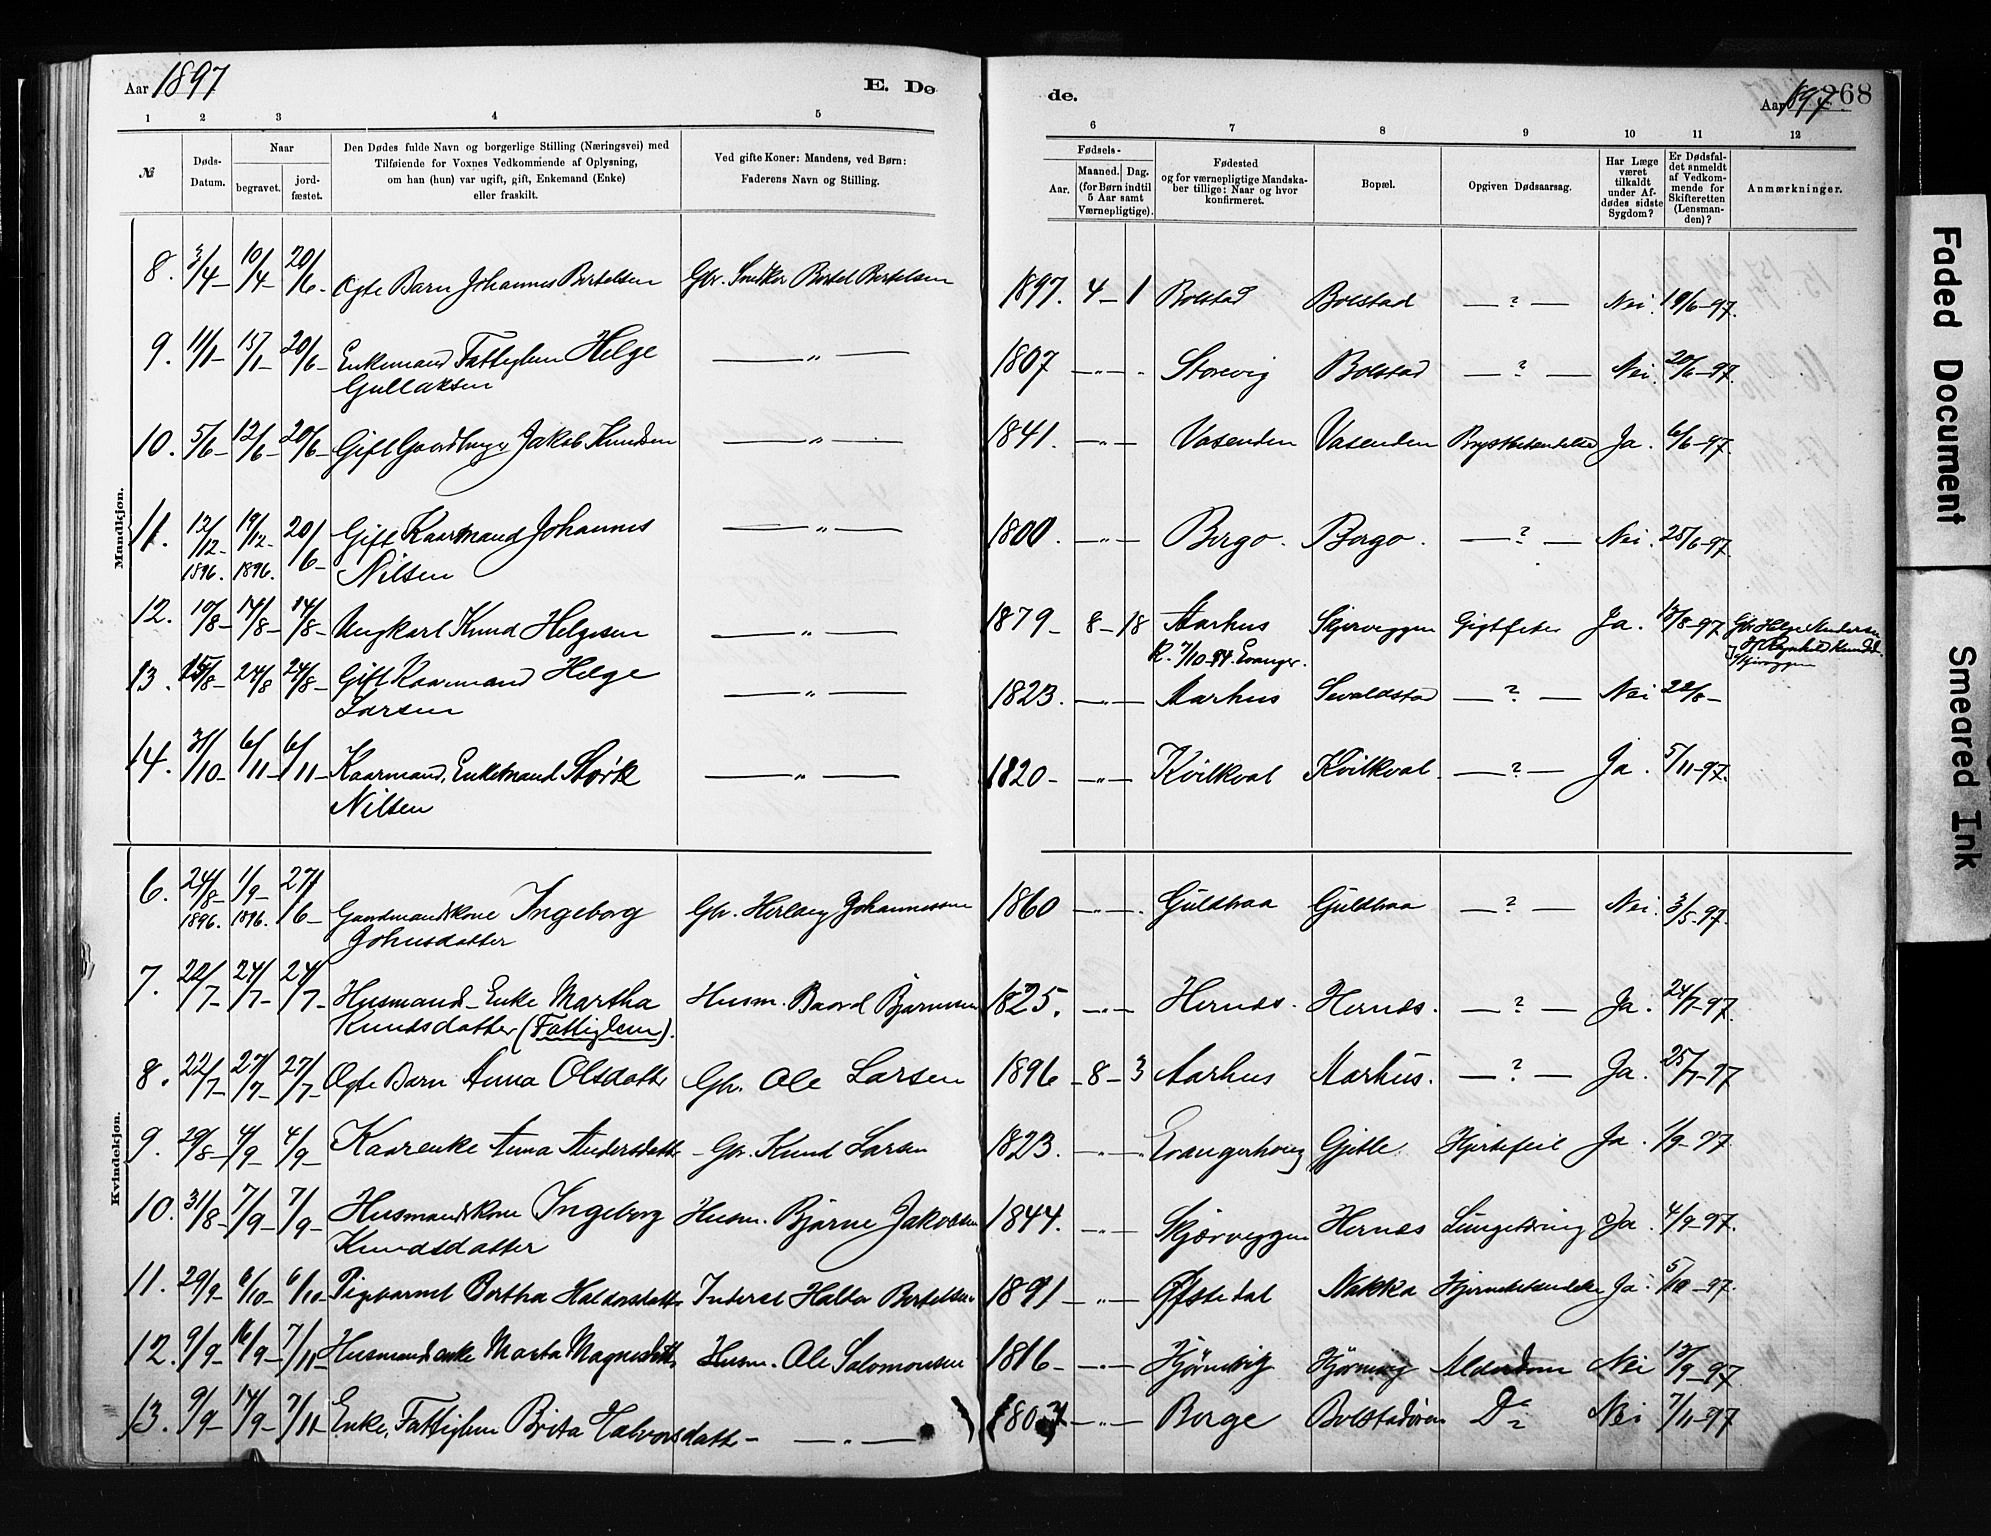 Aar 1897 E. Dø
de. Aar 1897 268
1 2 3 4 5 6 7 8 9 10 11 12
№ Døds-Datum. Naar begravet. jordfæstet. Den Dødes fulde Navn og borgerlige Stilling (Næringsvei) med Tilføiende for Voxnes Vedkommende af Oplysning, om han (hun) var ugift, gift, Enkemand (Enke) eller fraskilt. Ved gifte Koner: Mandens, ved Børn: Faderens Navn og Stilling. Fødsels- Aar. Maaned. Dag. (for Børn indtil 5 Aar samt Værnepligtige). Fødested og for værnepligtige Mandskaber tillige: Naar og hvor konfirmeret. Bopæl. Opgiven Dødsaarsag. Har Læge været tilkaldt under Afdødes sidste Sygdom? Er Dødsfaldet anmeldt af Vedkommende for Skifteretten (Lensmanden)? Anmærkninger.
Mandkjøn.
8. 3/4 – 10/4 – 20/6 – Ægte Barn Johannes Bertelsen Gbr. Snedker Bertel Bertelsen 1897. 4 – 1 Bolstad Bolstad — ? — Nei. 19/6–97.
9. 11/1 – 15/1 – 20/6 – Enkemand, Fattiglem Helge — „ — 1807 — „ — Storevig Bolstad — ? — Nei. 20/6–97.
Gullaksen
10. 5/6 – 12/6 – 20/6 – Gift Gaardbruger Jakob Knudsen — „ — 1841. — „ — Vasenden Vasenden Brystbetændelse Ja. 6/6–97.
11. 12/12– 1896. 19/12– 1896. 20/6 – Gift Kaarmand Johannes — „ — 1800. — „ — Berge. Berge. — ? — Nei. 25/6–97.
Nilsen
12. 10/8 – 14/8 – 14/8 – Ungkarl Knud Helgesen — „ — 1879 – 8 – 18 Aarhus Skjerveggen Gigtfeber Ja. 13/8–97 Gbr. Helge Andersen
K. 7/10–94. Evanger.
13. 15/8 – 24/8 24/8 – Gift Kaarmand Helge — „ — 1823. — „ — Aarhus Sevaldstad — ? — Nei 22/8 –
Larsen
14. 31/10 – 6/11 – 6/11 – Kaarmand, Enkemand Størk — „ — 1820 – — „ — Kvilkval Kvilkval. — ? — Ja. 5/11–97.
Nilsen
Kvindekjøn.
6. 24/8– 1896. 1/9– 1896. 27/6 – Gaardmandskone Ingeborg Gbr. Herlaug Johannessen 1860 — „ — Guldbraa Guldbraa — ? — Nei. 3/5–97.
Johnsdatter
7. 22/7 – 24/7 – 24/7 – Husmands Enke Martha Husm. Baard Bjørnsen 1825. — „ — Hernes. Hernes. — ? — Ja. 24/7–97.
Knudsdatter (Fattiglem).
8. 22/7 – 27/7 – 27/7 – Ægte Barn Anna Olsdatter Gbr. Ole Larsen 1896 – 8 – 3 Aarhus Aarhus. — ? — Ja. 25/7–97
9. 29/8 – 4/9 – 4/9 – Kaarenke Anna Andersdatter – Gbr. Knud Larsen 1823. — „ — Evangerhoug Gjitle. Hjertefeil Ja. 1/9–97
10. 31/8 – 7/9 – 7/9 – Husmandskone Ingeborg Husm. Bjørne Jakobsen 1844. — „ — Skjerveggen Hernes Lungetæring Ja. 4/9–97.
Knudsdatter
11. 29/9 – 6/10 – 6/10 – Pigebarnet Bertha Haldorsdatter Inderst Haldor Bertelsen 1891 — „ — Øfstedal Nakka Hjernebetændelse Ja. 5/10–97.
12. 9/9 – 16/9 – 7/11 – Husmandsenke Marta Magnesdatter Husm. Ole Salomonsen 1816 — „ — Hjørnevig Hjørnevig Alderdom Nei 12/9–97
13. 9/9 – 14/9 – 7/11 – Enke, Fattiglem Brita Halvorsdatter – — „ — 1807 — „ — Berge Bolstadøren Do ? Nei 7/11–97
Faded Document
Smeared Ink